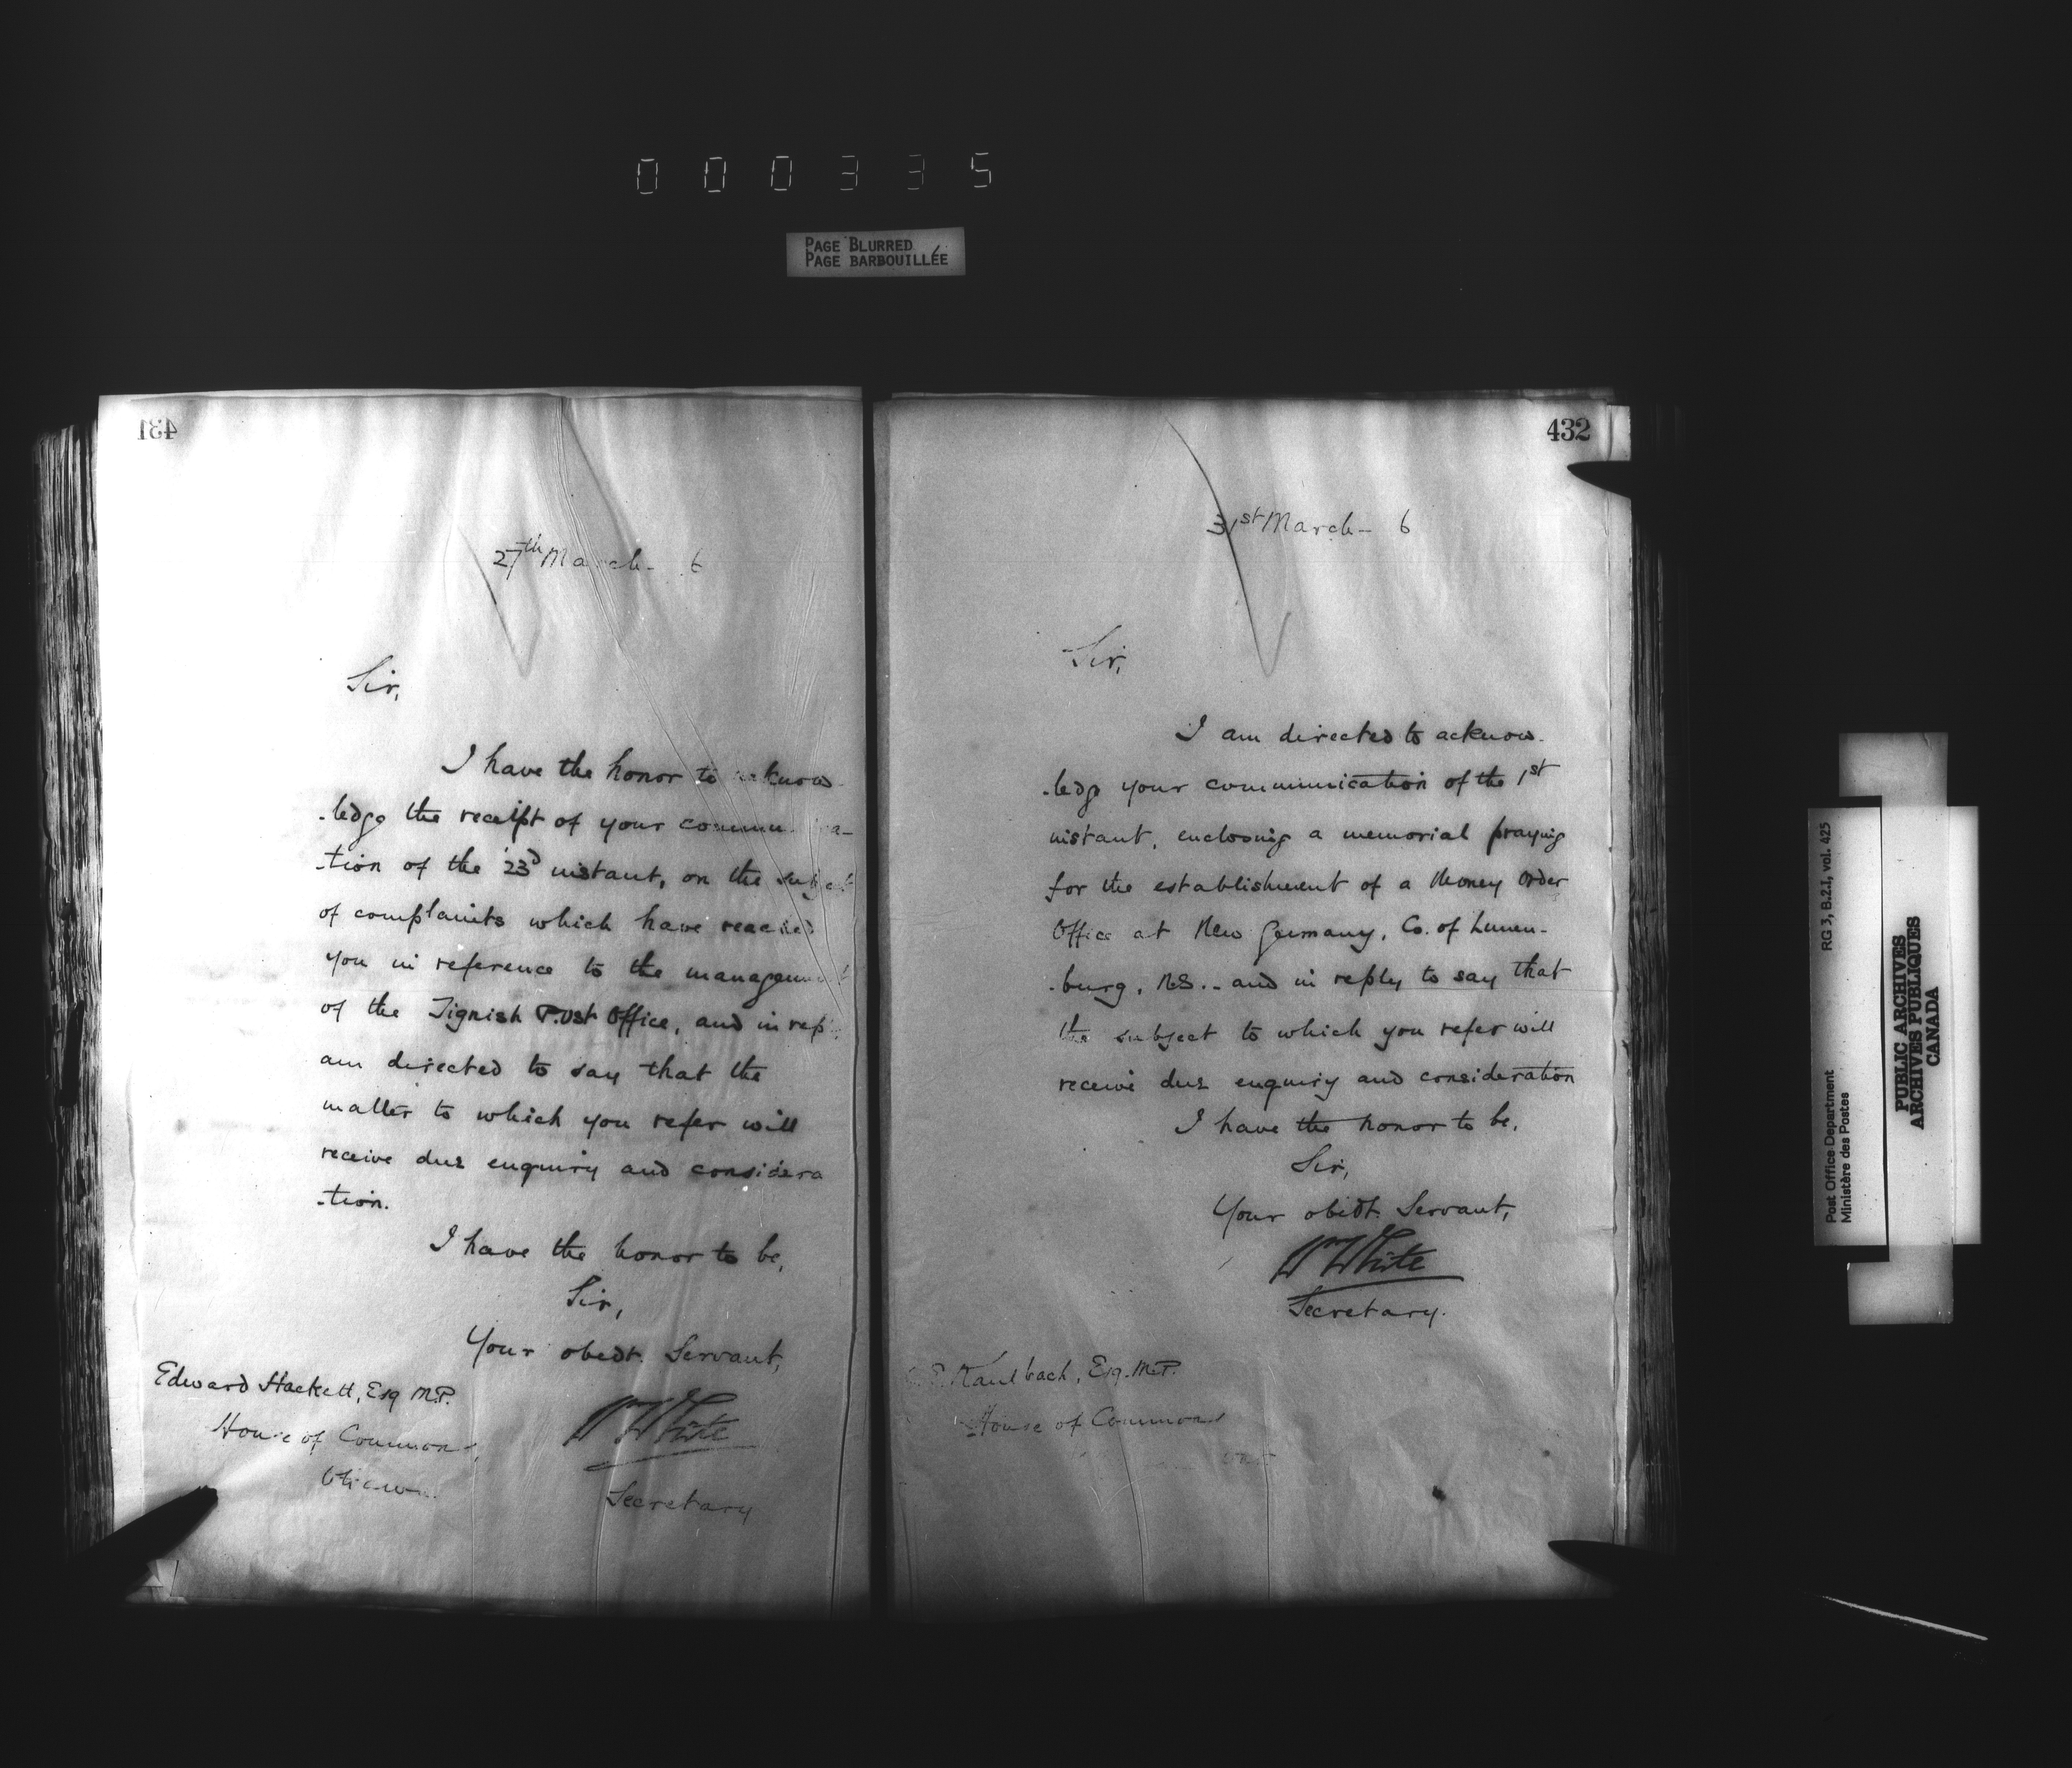 000335
PAGE BLURRED
PAGE BARBOUILLÉE
431
27th March - 6
Sir,
I have the honor to acknow
-ledge the receipt of your commu a-
-tion of the 23d instant, on the subject
of complaints which have reached
you in reference to the management
of the Tignish Post Office, and in rep
am directed to say that the
matter to which you refer will
receive due enquiry and considera
-tion.
I have the honor to be,
Sir,
Your obedt. Servant,
Wm White
Secretary
Edward Hackett, Esq M.P.
House of Commons,
Ottawa
432
31st March - 6
Sir,
I am directed to acknow-
-ledge your communication of the 1st
instant, enclosing a memorial praying
for the establishment of a Money Order
Office at New Germany, Co. of Lunen-
-burg, N.S. - and in reply to say that
the subject to which you refer will
receive due enquiry and consideration
I have the honor to be,
Sir,
Your obedt. Servant,
Wm White
Secretary.
E. Kaulbach, Esq. M.P.
House of Commons
RG 3, B.2.1, vol. 425
Post Office Department
Ministère des Postes
PUBLIC ARCHIVES
ARCHIVES PUBLIQUES
CANADA